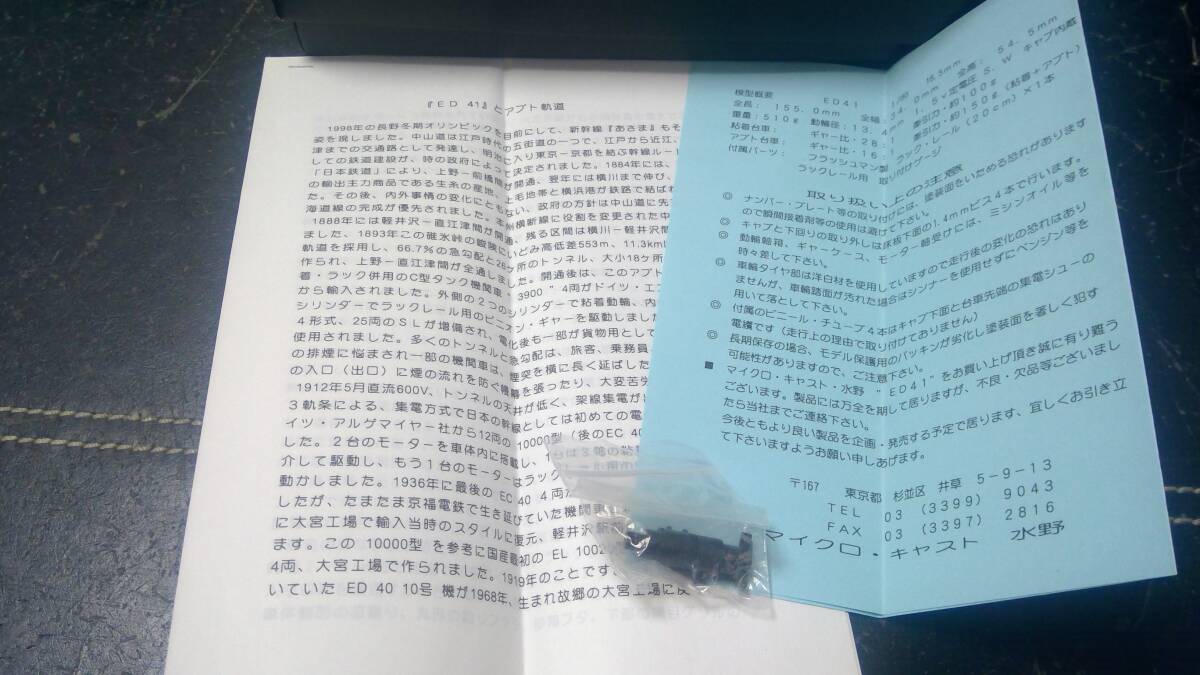 『ED 41』とアプト軌道
1998年の長野冬期オリンピックを目前にして、新幹線『あさま』もそ
姿を現しました。中山道は江戸時代の五街道の一つで、江戸から近江、
津までの交通路として発達し、明治に入り東京ー京都を結ぶ幹線ルー
しての鉄道建設が、時の政府によって決定されました。1884年には、
「日本鉄道」により、上野ー前橋間が開通、翌年には横川まで伸び、
の輸出主力商品である生糸の産地、上毛地帯と横浜港が鉄路で結ばれ
た。その後、内外事情の変化にともない、政府の方針は中山道に先
海道線の完成が優先されました。本州横断線に役割を変更された中
1888年には軽井沢ー直江津間が開通、残る区間は横川ー軽井沢間
ました、1893年この碓氷峠の嶮険にいどみ高低差553m、11.3km
軌道を採用し、66.7%の急勾配と26ヶ所のトンネル、大小18ヶ所
作られ、上野ー直江津間が全通しました。開通後は、このアプト
着・ラック併用のC型タンク機関車 3900 "4両がドイツ・エ
から輸入されました。外側の2つのシリンダーで粘着動輪、内
シリンダーでラックレール用のピニオン・ギヤーを駆動しました
4形式、25両のSLが増備され、電化後も一部が貨物用として
使用されました。多くのトンネルと急勾配は、旅客、乗務員、
の排煙に悩まされ一部の機関車は、煙突を横に長く延ばした
の入口（出口）に煙の流れを防ぐ幕を張ったり、大変苦労
1912年5月直流600V、トンネルの天井が低く、架線集電が
3軌条による、集電方式で日本の幹線としては初めての電
イツ・アルゲマイヤー社から12両の 10000型（後のEC 40
した。2台のモーターを車体内に搭載し、1台は3軸の粘着
介して駆動し、もう1台のモーターはラックレール用の
動かしました。1936年に最後の EC 40 4両が
したが、たまたま京福電鉄で生き延びていた機関車
に大宮工場で輸入当時のスタイルに復元、軽井沢駅
ます。この 10000型 を参考に国産最初の EL 1002
4両、大宮工場で作られました。1919年のことです、
いていた ED 40 10号 機が1968年、生まれ故郷の大宮工場に戻
模型概要 ED41
1/80 16.5mm
全長： 155.0mm 全幅： 34.0mm 全高： 54.5mm
重量：510g 動輪径：13.4 1.5v定電圧 S.W キャブ内蔵
粘着台車： ギヤー比・28：1 牽引力・約100g
アプト台車： ギヤー比・16： 牽引力・約150g（粘着＋アプト）
付属パーツ： フラッシュマン製 ラック・レール（20cm）×1本
ラックレール用 取り付けゲージ
取り扱い上の注意
◎ ナンバー・プレート等の取り付けには、塗装面をいためる恐れがあります
ので瞬間接着剤等の使用は避けて下さい。
◎ キャブと下回りの取り外しは床板下面の1.4mmビス4本で行います。
◎ 動輪軸箱、ギヤーケース、モーター軸受けには、ミシンオイル等を
時々差して下さい。
◎ 車輪タイヤ部は洋白材を使用していますので走行後の変化の恐れはあり
ませんが、車輪踏面が汚れた場合はシンナーを使用せずにベンジン等を
用いて落として下さい。
◎ 付属のビニール・チューブ4本はキャブ下面と台車先端の集電シューの
電纜です（走行上の理由で取り付けておりません）
◎ 長期保存の場合、モデル保護用のパッキンが劣化し塗装面を著しく犯す
可能性がありますので、ご注意下さい。
■ マイクロ・キャスト・水野 "ED41"をお買い上げ頂き誠に有り難う
ございます。製品には万全を期して居りますが、不良・欠品等ございまし
たら当社までご連絡下さい。
今後ともより良い製品を企画・発売する予定で居ります、宜しくお引き立
て下さいますようお願い申しあげます。
〒167 東京都 杉並区 井草 5-9-13
TEL 03 (3399) 9043
FAX 03 (3397) 2816
マイクロ・キャスト 水野